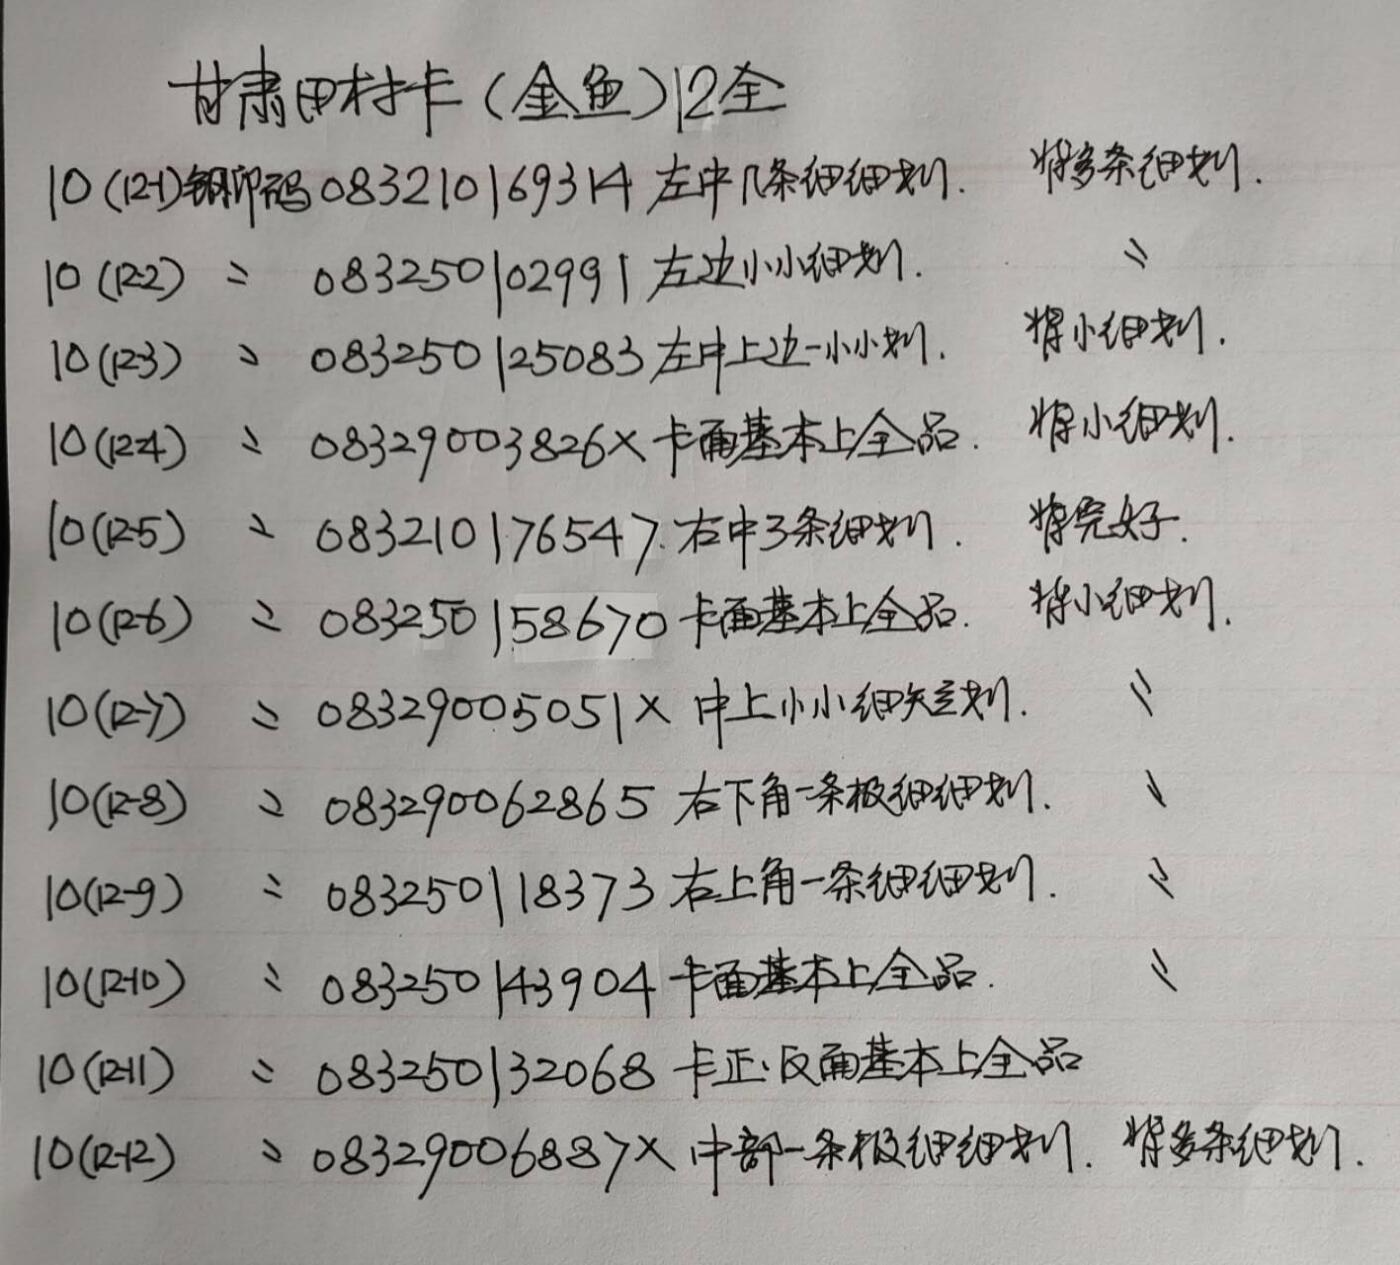 甘肃田村卡(金鱼)12全
10(12-1)钢印码083210169314左中几条细细划. 背多条细划.
10(12-2) 〃 083250102991左边小小细划. 〃
10(12-3) 〃 083250125083左中上边一小小划. 背小细划.
10(12-4) 〃 08329003826X卡面基本上全品. 背小细划.
10(12-5) 〃 083210176547.右中3条细划. 背完好.
10(12-6) 〃 083250158670卡面基本上全品. 背小细划.
10(12-7) 〃 08329005051X 中上小小细短划. 〃
10(12-8) 〃 083290062865 右下角一条极细细划. 〃
10(12-9) 〃 083250118373右上角一条细细划. 〃
10(12-10) 〃 083250143904卡面基本上全品. 〃
10(12-11) 〃 083250132068卡正.反面基本上全品
10(12-12) 〃 08329006887X 中部一条极细细划. 背多条细划.